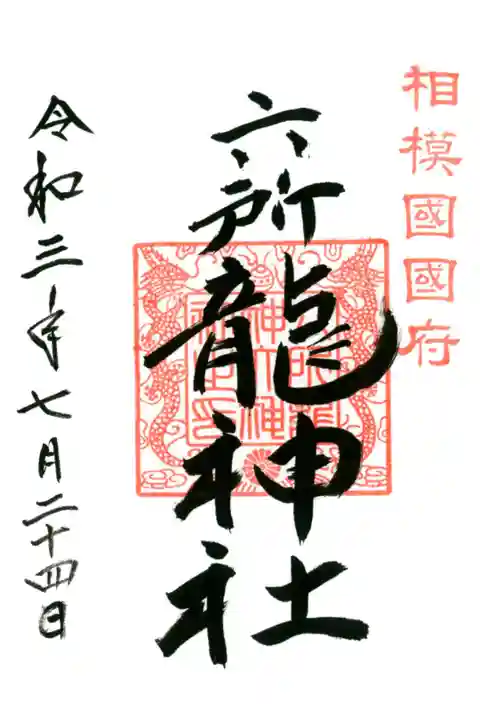 相模國國府
六所龍神社
令和三年七月二十四日